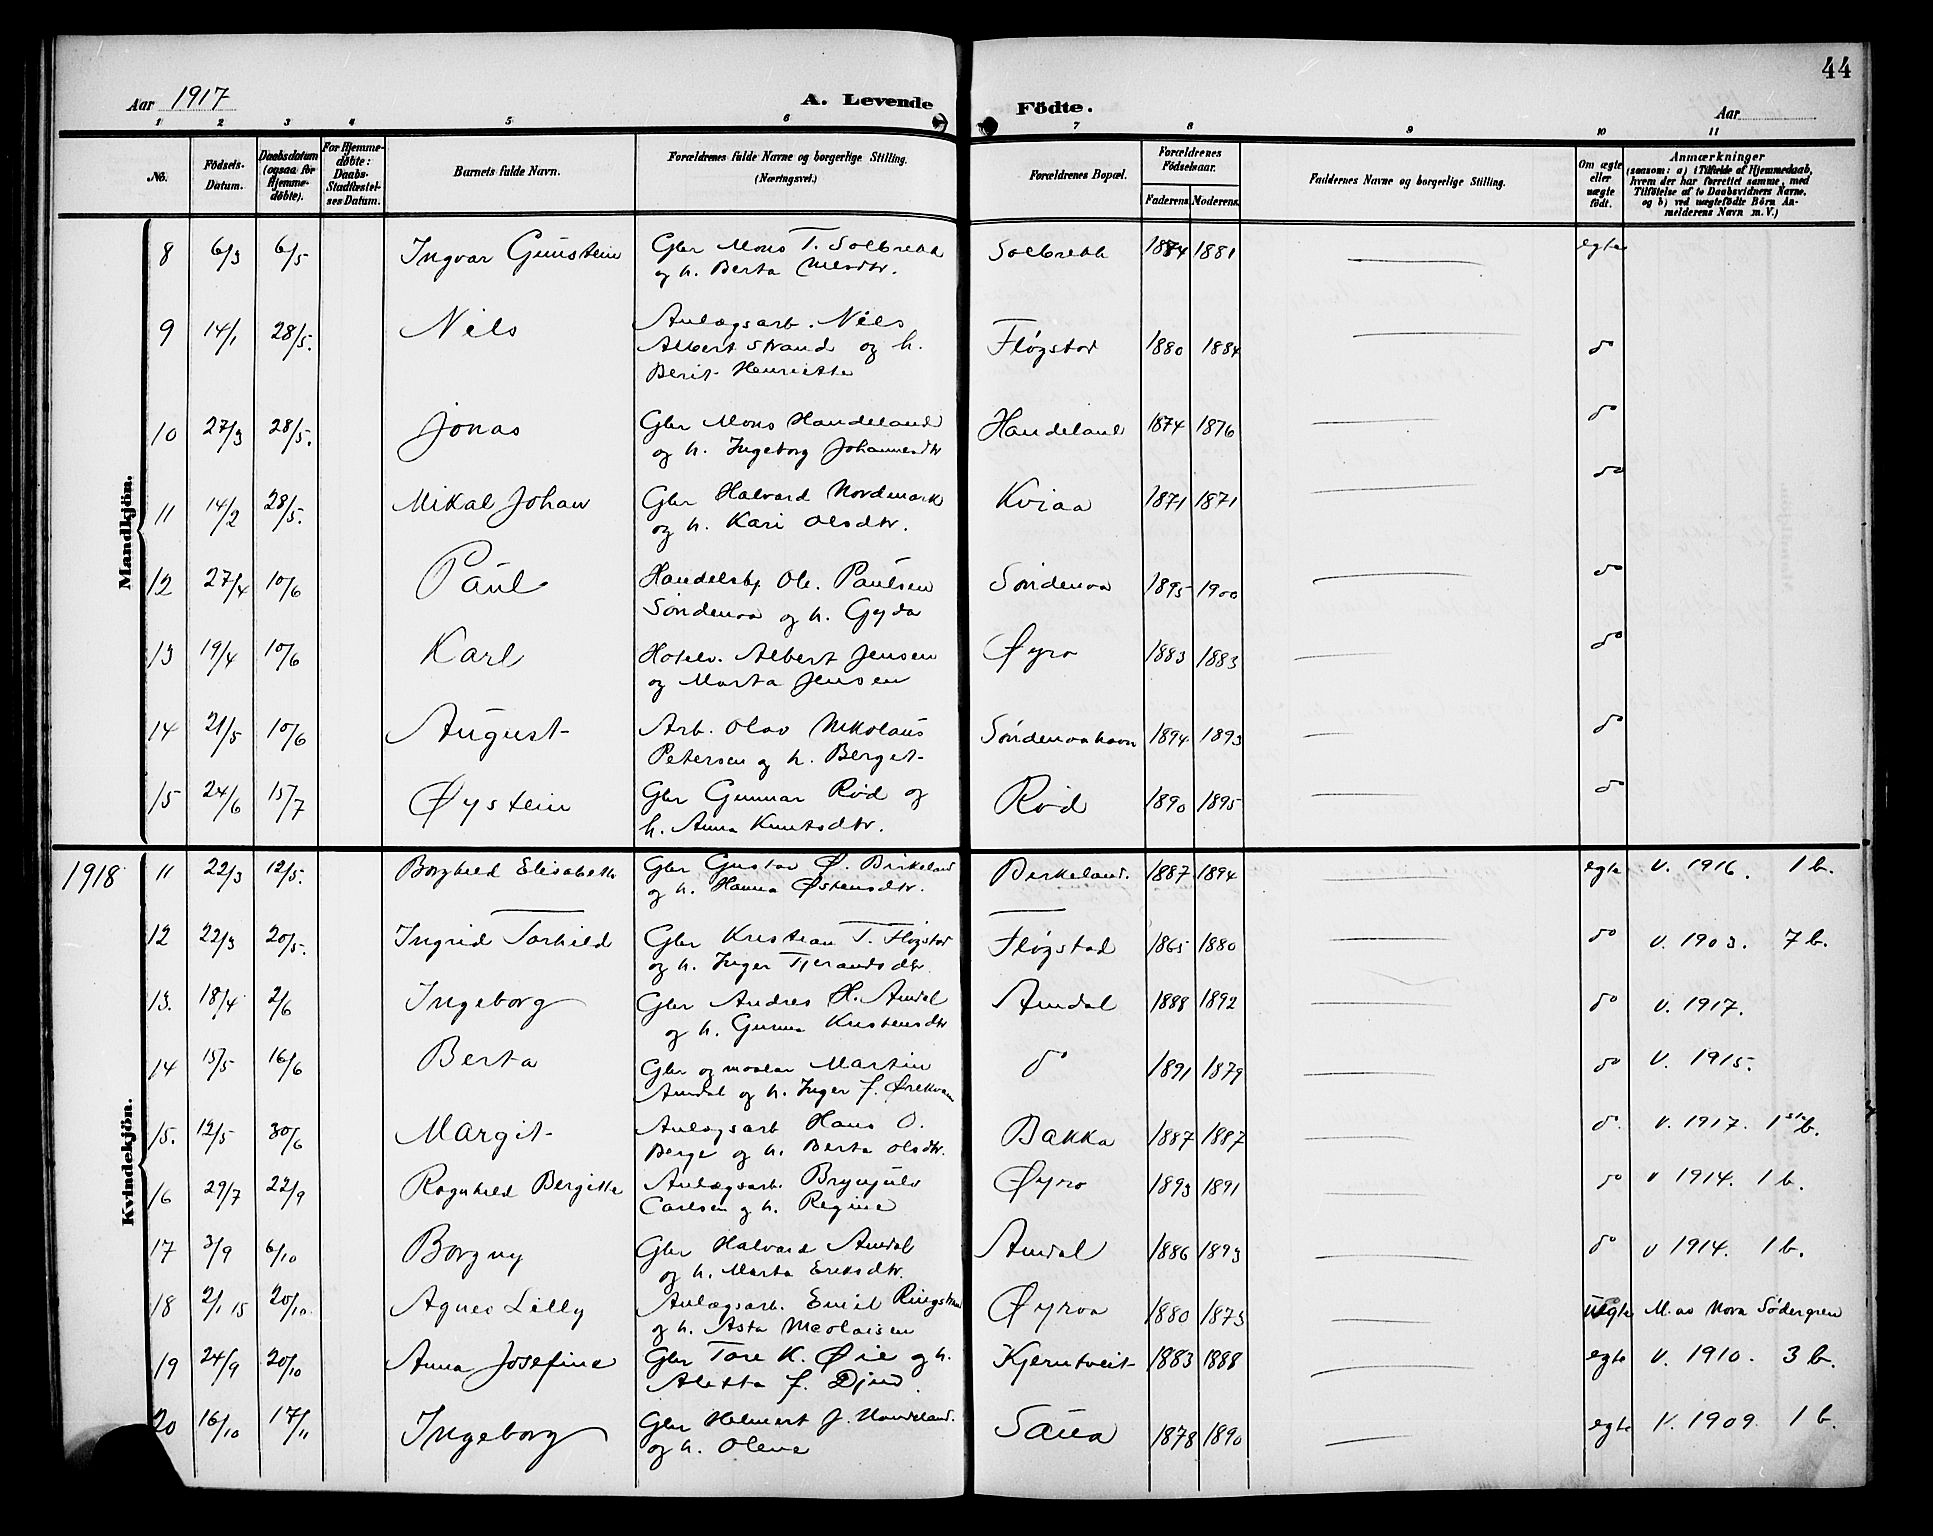 44
Aar 1917 A. Levende Födte. Aar
1 2 3 4 5 6 7 8 9 10 11
No. Födsels-Datum. Daabsdatum (ogsaa for Hjemme-döbte). For Hjemme-döbte: Daabs-Stadfæstel-ses Datum. Barnets fulde Navn. Forældrenes fulde Navne og borgerlige Stilling. (Næringsvei.) Forældrenes Bopæl. Forældrenes Födselsaar. Faderens Moderens. Faddernes Navne og borgerlige Stilling. Om ægte eller uægte födt. Anmærkninger (saasom: a) i Tilfælde af Hjemmedaab, hvem der har forrettet samme, med Tilföielse af to Daabsvidners Navne, og b) ved uægtefödte Börn Anmelderens Navn m. V.)
Mandkjön.
8 6/3 6/5 Ingvar Gunstein Gbr Mons T. Solbrekk Solbrekk 1874 1881 egte
og h. Berta
9 14/1 28/5. Nils Anlægsarb. Nils
Albert Strand og h. Fløgstad 1880 1884 do
Berit Henriette
10 27/3 28/5. Jonas Gbr Mons Handeland Handeland 1874 1876 do
og h. Ingeborg Johannesdtr
11 14/2 28/5. Mikal Johan Gbr Halvard Nordmark Kviaa 1871 1871 do
og h. Kari Olsdtr.
12 27/4 10/6 Paul Handelsbj. Ole Paulsen Søndenaa 1895 1900 do
Søndenaa og h. Gyda
13 19/4 10/6 Karl Hotelv. Albert Jensen Øyro 1883 1883 do
og Marta Jensen
14 21/5 10/6 August Arb. Olav Nikolaus Søndenaahavn 1894 1893 do
Petersen og h. Berget
15 24/6 15/7 Øystein Gbr Gunnar Rød og Rød 1890 1895 do
h. Anna Knutsdtr.
1918
Kvindekjön.
11 22/3 12/5. Borghild Elisabeth Gbr Gustav Ø. Birkeland Birkeland. 1887 1894 egte v. 1916. 1 b.
og h. Hanna Østensdtr.
12 22/3 20/5. Ingrid Torhild Gbr Kristian T. Fløgstad Fløgstad 1865 1880 do v. 1903. 7 b.
og h. Inger Tjerandsdtr
13. 18/4 2/6 Ingeborg Gbr Andres H. Amdal Amdal 1888 1892 do v. 1917.
og h. Gunna Kristensdtr
14 15/5 16/6 Berta Gbr og maalar Martin do 1891 1879 do v. 1915.
Amdal og h. Inger f. Ørekvam
15. 12/5 30/6 Margit Anlægsarb Hans O. Bakka 1887 1887 do. v. 1917. 1ste b.
Berge og h. Berta Olsdtr.
16 29/7 22/9 Ragnhild Bergitte Anlægsarb. Brynjulv Øyro 1893 1891 do v 1914. 1 b.
Carlsen og h. Regine
17 3/9 6/10 Borgny Gbr Halvard Amdal Amdal 1886 1893 do v 1914. 1 b.
og h. Marta Eriksdtr.
18 2/1 15 20/10. Agnes Lilly Anlægsarb. Emil Øyroa 1880 1875 uegte M. av Nora Södergren
og h. Asta Nicolaisen
19 24/9 20/10 Anna Josefine Gbr Tore K. Øie og h. Kjerntveit 1883 1888 egte v. 1910. 3 b.
Aletta f.
20 16/10 17/11 Ingeborg Gbr Helmert J. Handeland. Saua 1878 1890 egte v. 1909. 1 b.
og h. Olene